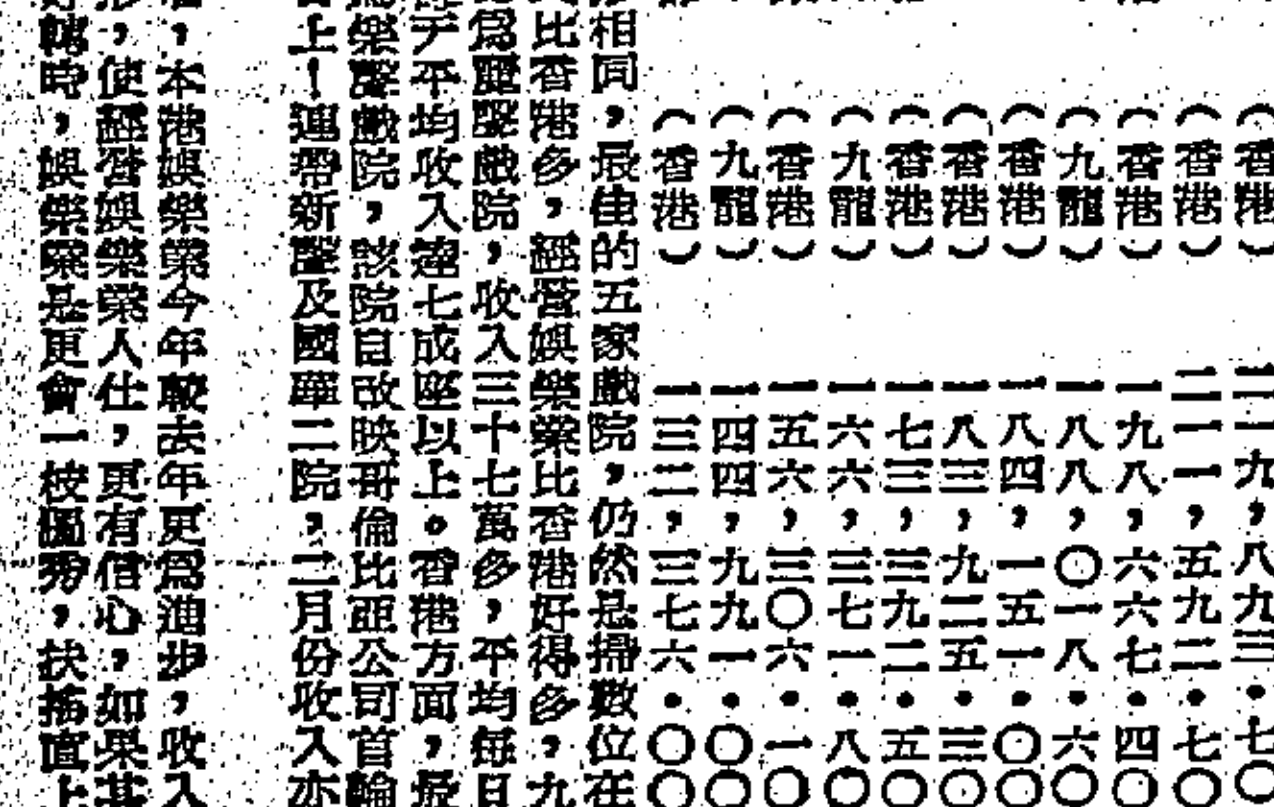 （香港）二一九，八九三．七〇
（香港）二一一，五九二．七〇
（香港）一九八，六六七．四〇
（九龍）一八八，〇一八．六〇
（香港）一八四，一五一．〇〇
（香港）一八三，九二五．三〇
（香港）一七三，三九二．五〇
（九龍）一六六，三七一．八〇
（香港）一五六，三〇六．一〇
（九龍）一四四，九九一．〇〇
（香港）一三二，三七六．〇〇
相同，最佳的五家戲院，仍然是掃數位在
比香港多，經營娛樂業比香港好得多，九
爲麗聲戲院，收入三十七萬多，平均每日
于平均收入達七成座以上。香港方面，最
樂聲戲院，該院自改映哥倫比亞公司首輪
上！連帶新聲及國華二院，二月份收入亦
，本港娛樂業今年較去年更爲進步，收入
，使經營娛樂業人仕，更有信心，如果其
轉時，娛樂業是更會一枝獨秀，扶搖直上